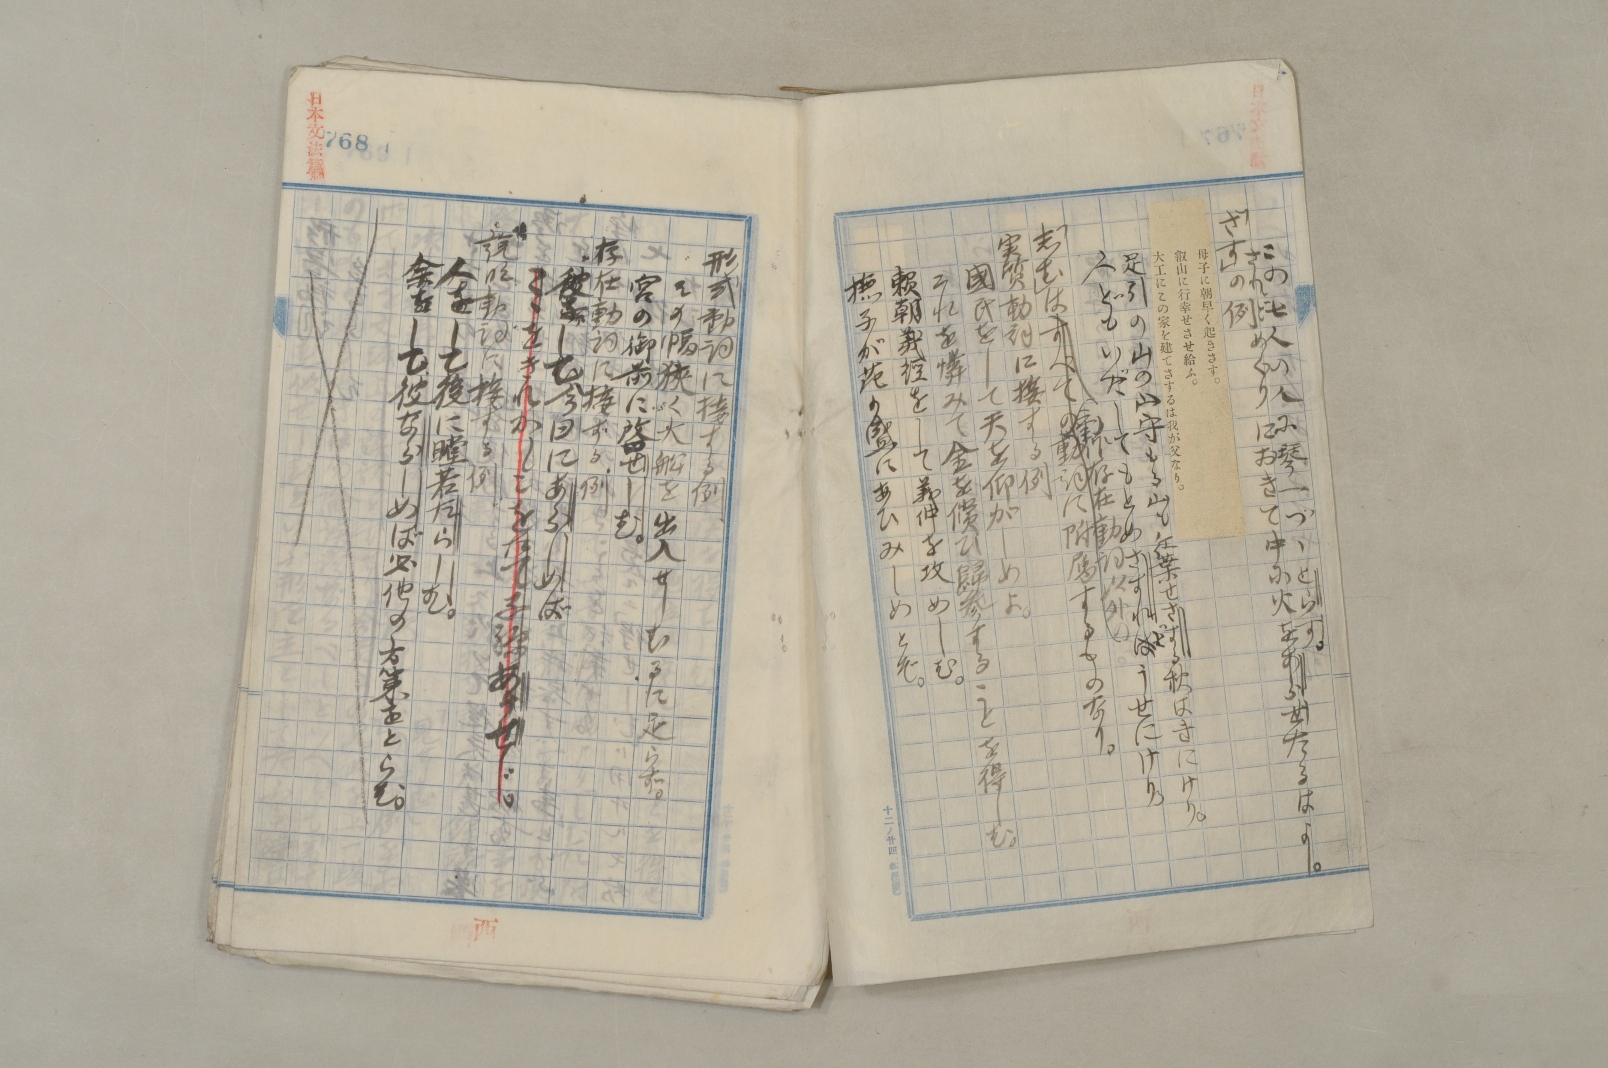 この七人の人に琴一づゝとらす。
されどめぐりにおきて中に火をあふせたるはよし。
「ざす」の例
母子に朝早く起きさす。
叡山に行幸せさせ給ふ。
大工にこの家を建てさするは我が父なり。
足引の山の山守もる山も紅葉せさする秋はきにけり。
人どもいだしてもとめさすれどうせにけり
「しむ」はすべての動詞に附属するものなり。
存在動詞以外の
実質動詞に接する例
國民をして天を仰がしめよ。
それを憐みて金を償ひ歸參することを得しむ。
頼朝義經をして義仲を攻めしむ。
撫子が花の盛にあひみしめとぞ。
十二ノ廿四
日本文法論
768
形式動詞に接する例、
その幅狹く大船を出入せしむるに足らず。
宮の御前に啓せしむ。
存在動詞に接する例
して今日にあらしめば
説明動詞に接する例
人をして後に瞠若たらしむ。
余をして彼ならしめば必他の方策をとらむ。
西